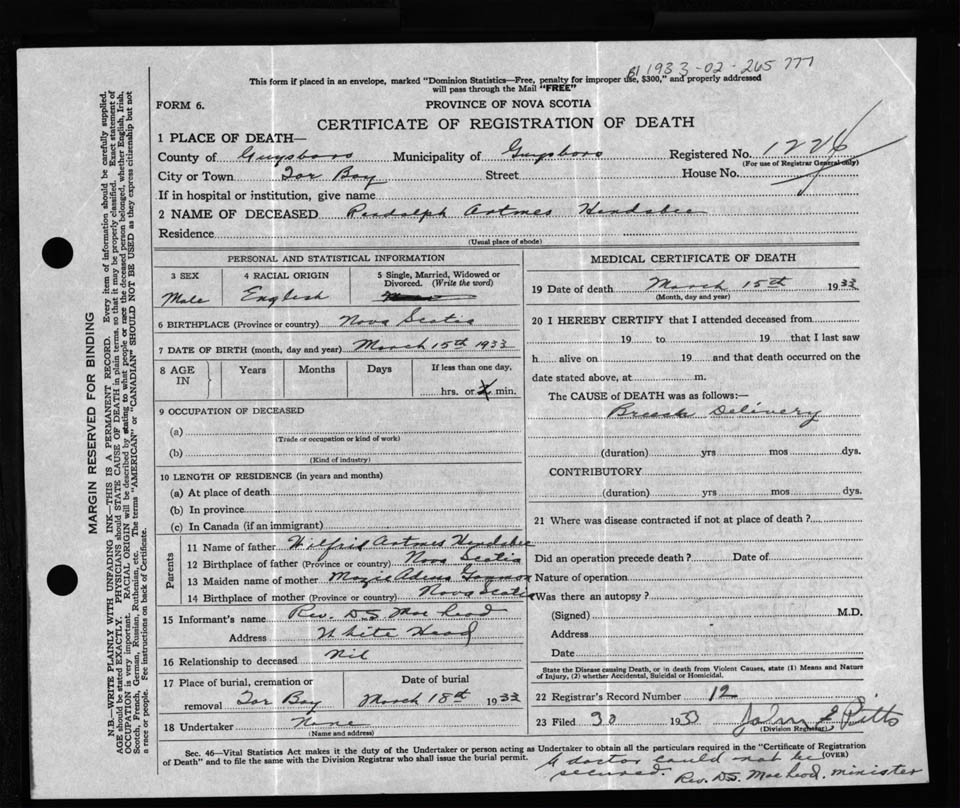 1933-02-265777
This form if placed in an envelope, marked "Dominion Statistics—Free, penalty for improper use, $300," and properly addressed
will pass through the Mail "FREE"
FORM 6.
PROVINCE OF NOVA SCOTIA
CERTIFICATE OF REGISTRATION OF DEATH
1 PLACE OF DEATH—
County of Guysboro Municipality of Guysboro Registered No. 1226
(For use of Registrar General only)
City or Town Tor Bay Street House No.
If in hospital or institution, give name
2 NAME OF DECEASED Randolph Artmes Hendsbee
Residence
(Usual place of abode)
PERSONAL AND STATISTICAL INFORMATION
3 SEX
Male
4 RACIAL ORIGIN
English
5 Single, Married, Widowed or
Divorced. (Write the word)
6 BIRTHPLACE (Province or country) Nova Scotia
7 DATE OF BIRTH (month, day and year) March 15th 1933
8 AGE IN Years Months Days If less than one day,
hrs. or min.
9 OCCUPATION OF DECEASED
(a)
(Trade or occupation or kind of work)
(b)
(Kind of industry)
10 LENGTH OF RESIDENCE (in years and months)
(a) At place of death
(b) In province
(c) In Canada (if an immigrant)
Parents
11 Name of father Wilfrid Artmes Hendsbee
12 Birthplace of father (Province or country) Nova Scotia
13 Maiden name of mother Mazie
14 Birthplace of mother (Province or country) Nova Scotia
15 Informant's name Rev. D.S. MacLeod
Address White Head
16 Relationship to deceased Nil
17 Place of burial, cremation or
removal Tor Bay
Date of burial
March 18th 1933
18 Undertaker None
(Name and address)
MEDICAL CERTIFICATE OF DEATH
19 Date of death March 15th 1933
(Month, day and year)
20 I HEREBY CERTIFY that I attended deceased from
19 to 19 that I last saw
h alive on 19 and that death occurred on the
date stated above, at m.
The CAUSE of DEATH was as follows:—
Breech Delivery
(duration) yrs mos dys.
CONTRIBUTORY
(duration) yrs mos dys.
21 Where was disease contracted if not at place of death?
Did an operation precede death? Date of
Nature of operation
Was there an autopsy?
(Signed) M.D.
Address
Date
State the Disease causing Death, or in death from Violent Causes, state (1) Means and Nature
of Injury, (2) whether Accidental, Suicidal or Homicidal.
22 Registrar's Record Number 12
23 Filed 30 1933 John E Pitts
(Division Registrar)
Sec. 46—Vital Statistics Act makes it the duty of the Undertaker or person acting as Undertaker to obtain all the particulars required in the "Certificate of Registration
of Death" and to file the same with the Division Registrar who shall issue the burial permit.
(OVER)
A doctor could not be
secured. Rev. D.S. MacLeod. minister
MARGIN RESERVED FOR BINDING
N.B.—WRITE PLAINLY WITH UNFADING INK—THIS IS A PERMANENT RECORD. Every item of information should be carefully supplied.
AGE should be stated EXACTLY. PHYSICIANS should STATE CAUSE OF DEATH in plain terms, so that it may be properly classified. Exact statement of
OCCUPATION is very important. RACIAL ORIGIN will be described by stating to what people or race the deceased person belonged, whether English, Irish,
Scotch, French, German, Russian, Ruthenian, etc. The terms "AMERICAN" or "CANADIAN" SHOULD NOT BE USED as they express citizenship but not
a race or people. See instructions on back of Certificate.